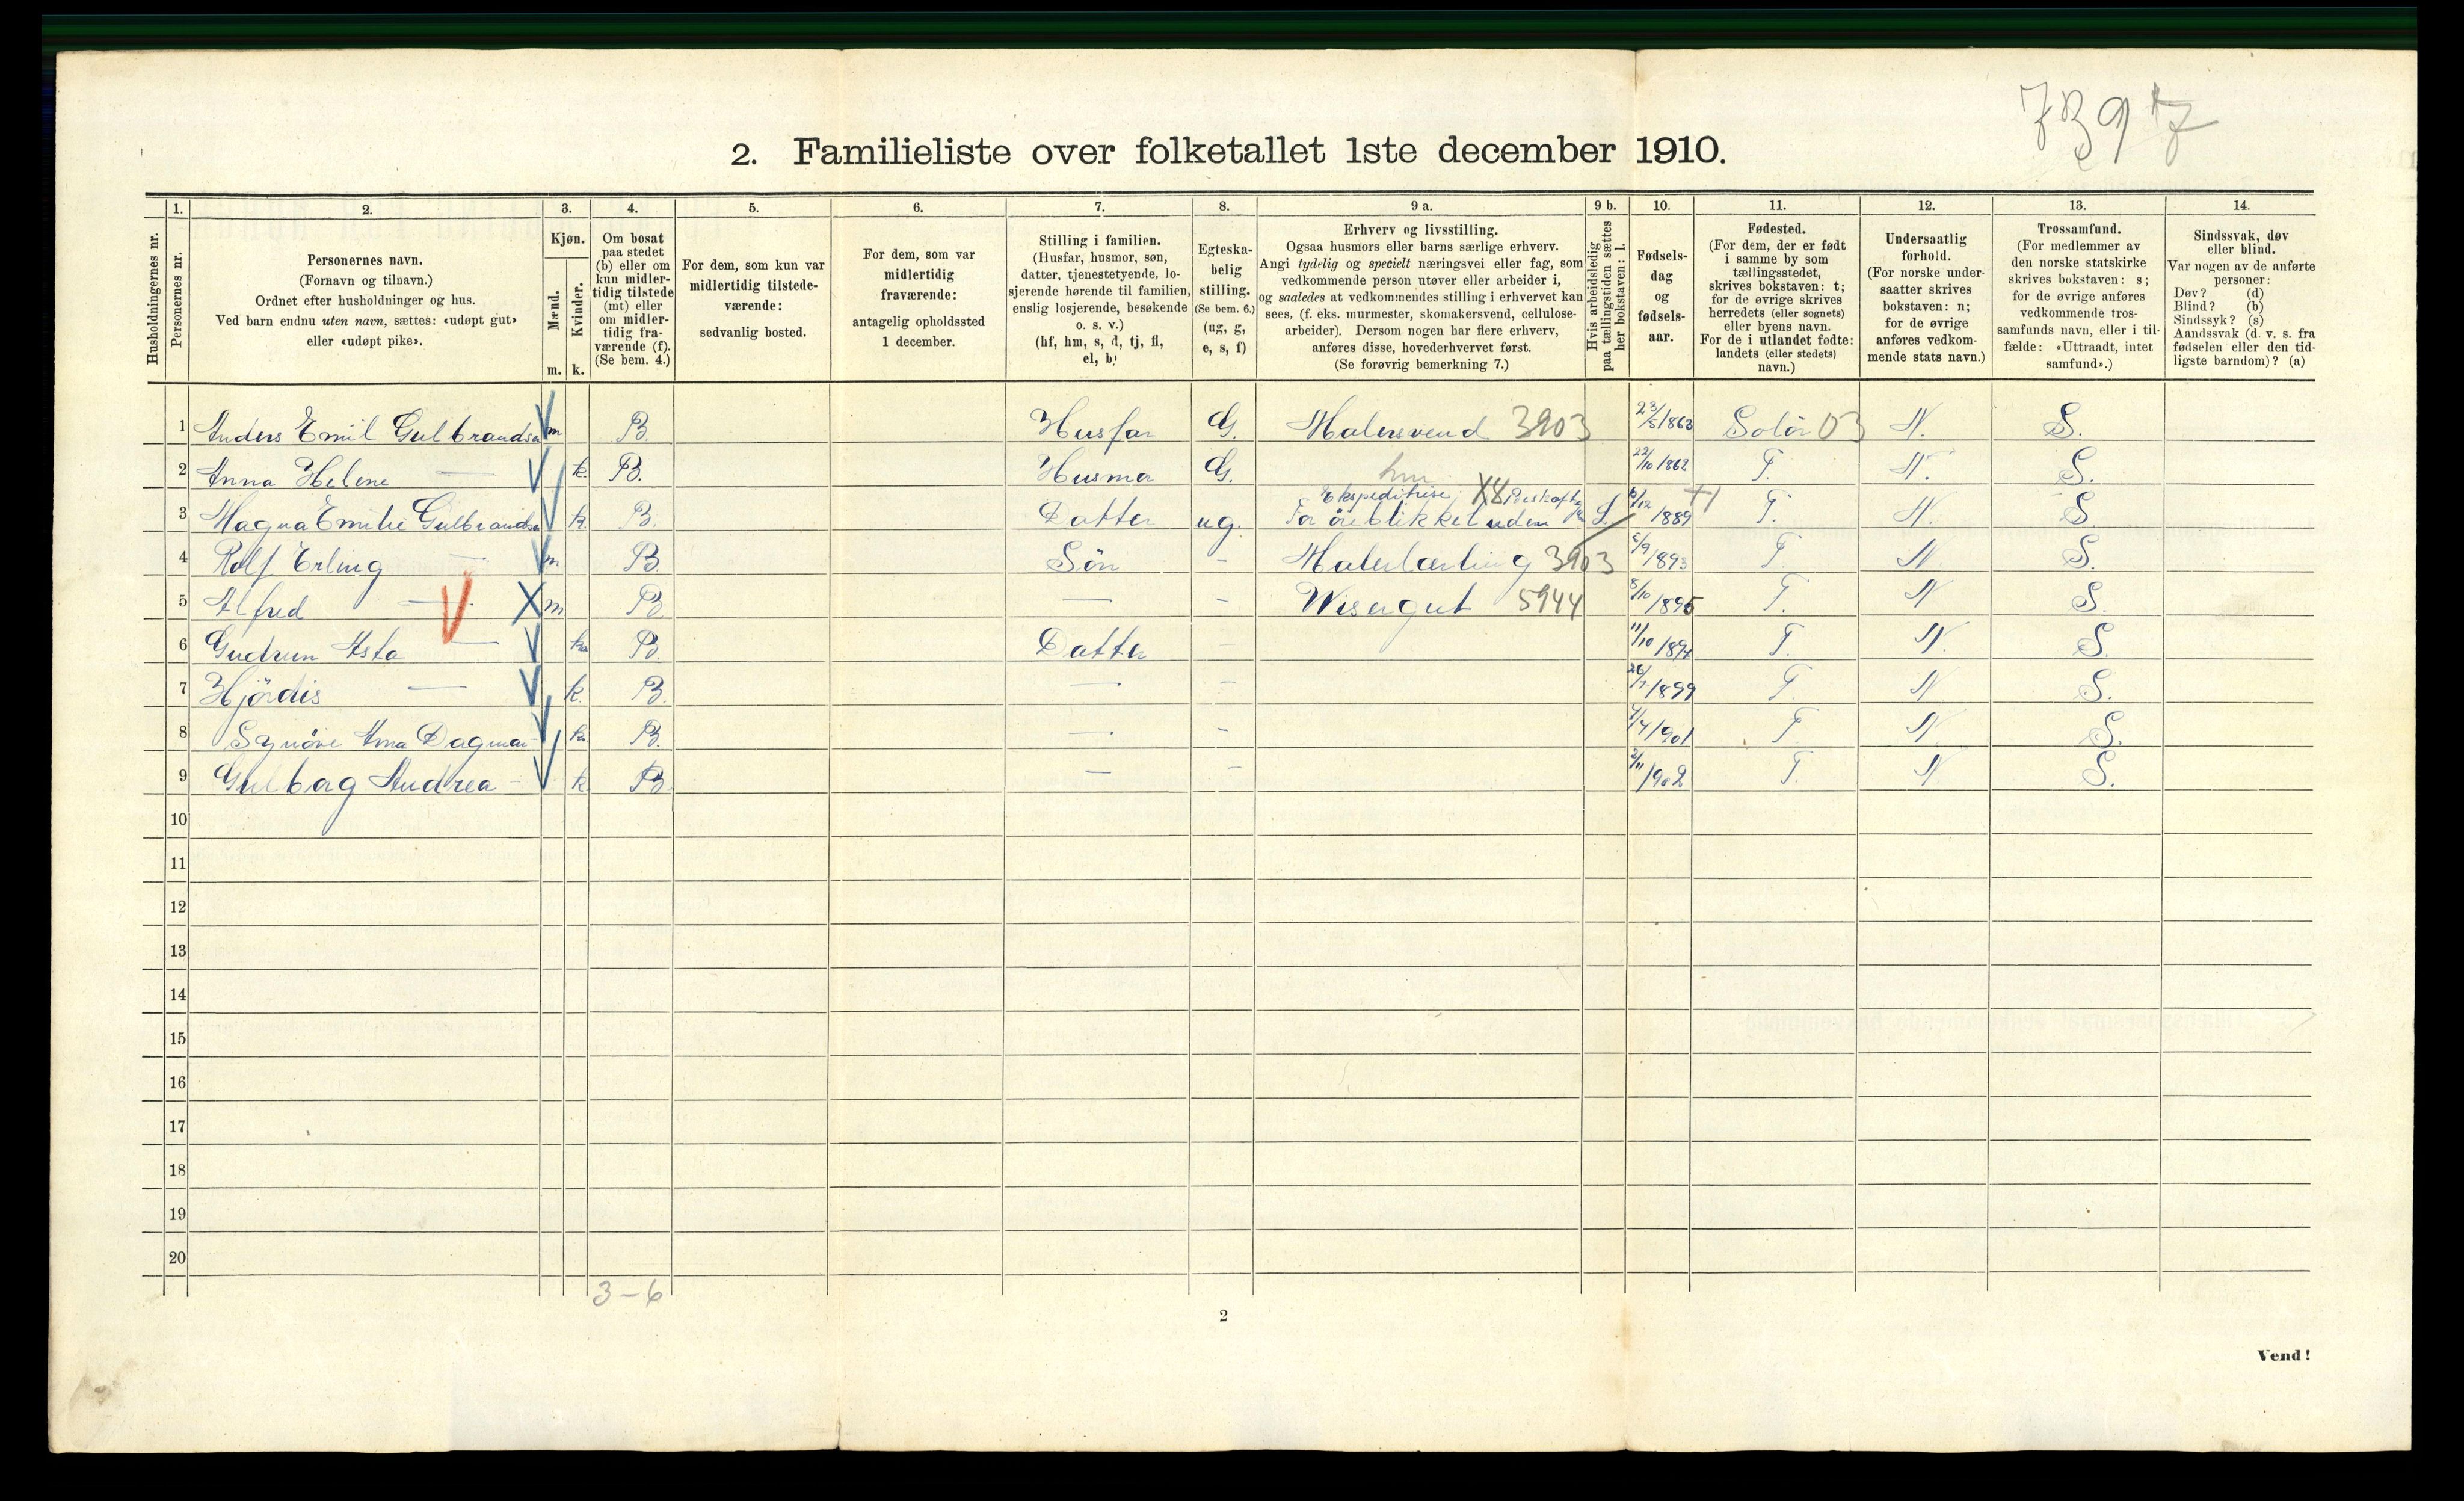 7397
2. Familieliste over folketallet 1ste december 1910.
1. 2. 3. 4. 5. 6. 7. 8. 9 a. 9 b. 10. 11. 12. 13. 14.
Husholdningernes nr.
Personernes nr.
Personernes navn.
(Fornavn og tilnavn.)
Ordnet efter husholdninger og hus.
Ved barn endnu uten navn, sættes: «udøpt gut»
eller «udøpt pike».
Kjøn.
Mænd.
m.
Kvinder.
k.
Om bosat
paa stedet
(b) eller om
kun midler-
tidig tilstede
(mt) eller
om midler-
tidig fra-
værende (f).
(Se bem. 4.)
For dem, som kun var
midlertidig tilstede-
værende:
sedvanlig bosted.
For dem, som var
midlertidig
fraværende:
antagelig opholdssted
1 december.
Stilling i familien.
(Husfar, husmor, søn,
datter, tjenestetyende, lo-
sjerende hørende til familien,
enslig losjerende, besøkende
o. s. v.)
(hf, hm, s, d, tj, fl,
el, b)
Egteska-
belig
stilling.
(Se bem. 6.)
(ug, g,
e, s, f)
Erhverv og livsstilling.
Ogsaa husmors eller barns særlige erhverv.
Angi tydelig og specielt næringsvei eller fag, som
vedkommende person utøver eller arbeider i,
og saaledes at vedkommendes stilling i erhvervet kan
sees, (f. eks. murmester, skomakersvend, cellulose-
arbeider). Dersom nogen har flere erhverv,
anføres disse, hovederhvervet først.
(Se forøvrig bemerkning 7.)
Hvis arbeidsledig
paa tællingstiden sættes
her bokstaven: l.
Fødsels-
dag
og
fødsels-
aar.
Fødested.
(For dem, der er født
i samme by som
tællingsstedet,
skrives bokstaven: t;
for de øvrige skrives
herredets (eller sognets)
eller byens navn.
For de i utlandet fødte:
landets (eller stedets)
navn.)
Undersaatlig
forhold.
(For norske under-
saatter skrives
bokstaven: n;
for de øvrige
anføres vedkom-
mende stats navn.)
Trossamfund.
(For medlemmer av
den norske statskirke
skrives bokstaven: s;
for de øvrige anføres
vedkommende tros-
samfunds navn, eller i til-
fælde: «Uttraadt, intet
samfund».)
Sindssvak, døv
eller blind.
Var nogen av de anførte
personer:
Døv? (d)
Blind? (b)
Sindssyk? (s)
Aandssvak (d. v. s. fra
fødselen eller den tid-
ligste barndom)? (a)
1 Anders Emil Gulbrandsen m B. Husfar G. Malersvend 3903 23/5 1863 Solör 03 N. S.
2 Anna Helene — k B. Husmo G. hm 22/10 1862 T. N. S.
3 Magna Emilie Gulbrandsen k. B. Datter ug. Ekspeditrise For öieblikket uden L. 6/12 1889 T. N. S.
4 Rolf Erling — m B. Sön - Malerlærling 3903 6/9 1893 T. N. S.
5 Alfred — m B — - Visergut 5944 8/10 1895 T. N S.
6 Gudrun Asta — k B. Datter - 11/10 1897 T. N. S.
7 Hjördis — k. B. — - 26/7 1899 T. N S.
8 Synöve Anna Dagmar - k B. — - 4/4 1901 T. N S.
9 Gulborg Andrea - k B. — - 2/11 1902 T. N. S.
10
11
12
13
14
15
16
17
18
19
20
3 - 6
2
Vend!